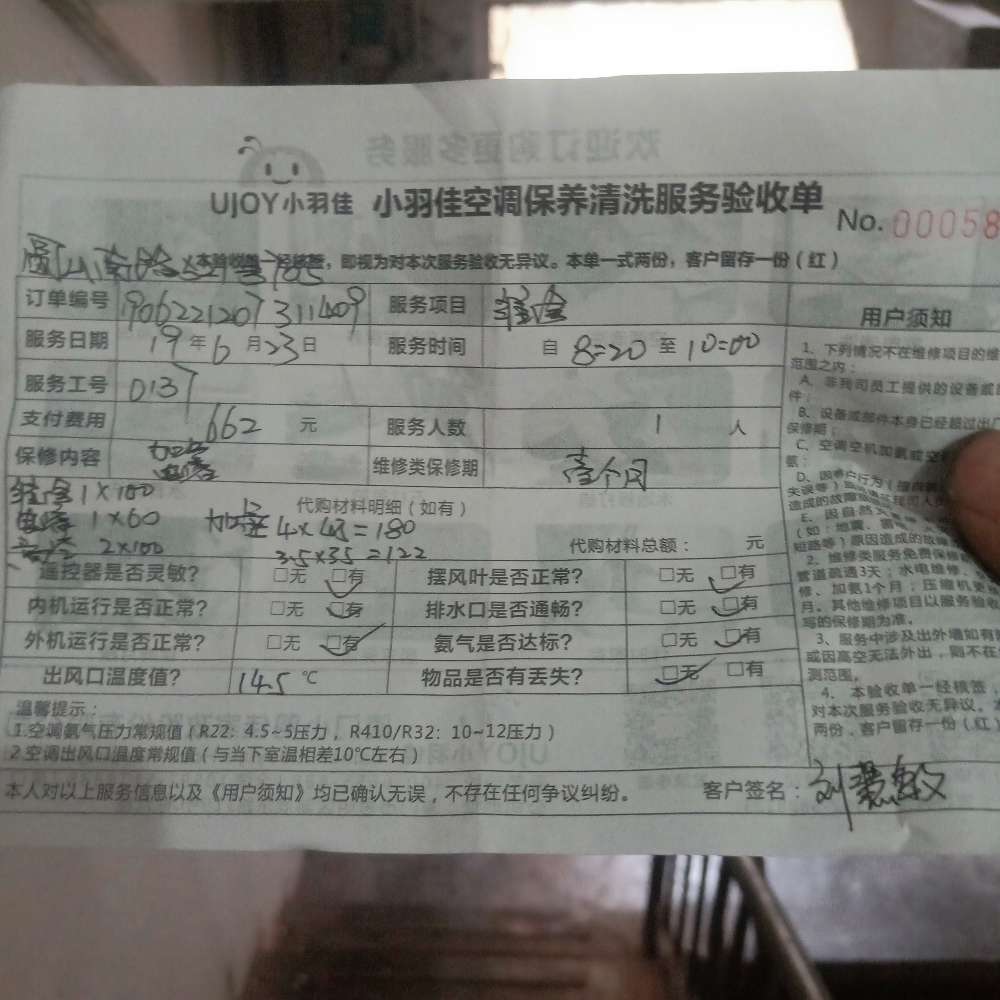 欢迎订购更多服务
UJOY小羽佳 小羽佳空调保养清洗服务验收单 No. 00058
即视为对本次服务验收无异议。本单一式两份，客户留存一份（红）
订单编号 190622120731409 服务项目
服务日期 19年6月23日 服务时间 自 8:20 至 10:00
服务工号 0137
支付费用 662 元 服务人数 1 人
保修内容 维修类保修期 壹个月
代购材料明细（如有）
1×100
1×60 4×45=180
2×100 3.5×35=122 代购材料总额： 元
遥控器是否灵敏? 无 有 摆风叶是否正常? 无 有
内机运行是否正常? 无 有 排水口是否通畅? 无 有
外机运行是否正常? 无 有 氨气是否达标? 无 有
出风口温度值? 14.5 ℃ 物品是否有丢失? 无 有
温馨提示：
1.空调氨气压力常规值（R22：4.5~5压力，R410/R32：10~12压力）
2.空调出风口温度常规值（与当下室温相差10℃左右）
本人对以上服务信息以及《用户须知》均已确认无误，不存在任何争议纠纷。 客户签名：
用户须知
1、下列情况不在维修项目的维
范围之内：
A、非我司员工提供的设备或部
件；
B、设备或部件本身已经超过出厂
保修期；
C、空调空机加氨或空
氨；
D、因客户行为
造成的故障
E、因自然
（如：地震、雷
短路等）原因造成的故障
2、维修类服务免费保修
管道疏通3天；水电维修、
修、加氨1个月；压缩机更
月。其他维修项目以服务验收
写的保修期为准。
3、服务中涉及出外墙如有
或因高空无法外出，则不在
测范围。
4、本验收单一经核签，
对本次服务验收无异议。本
两份，客户留存一份（红）